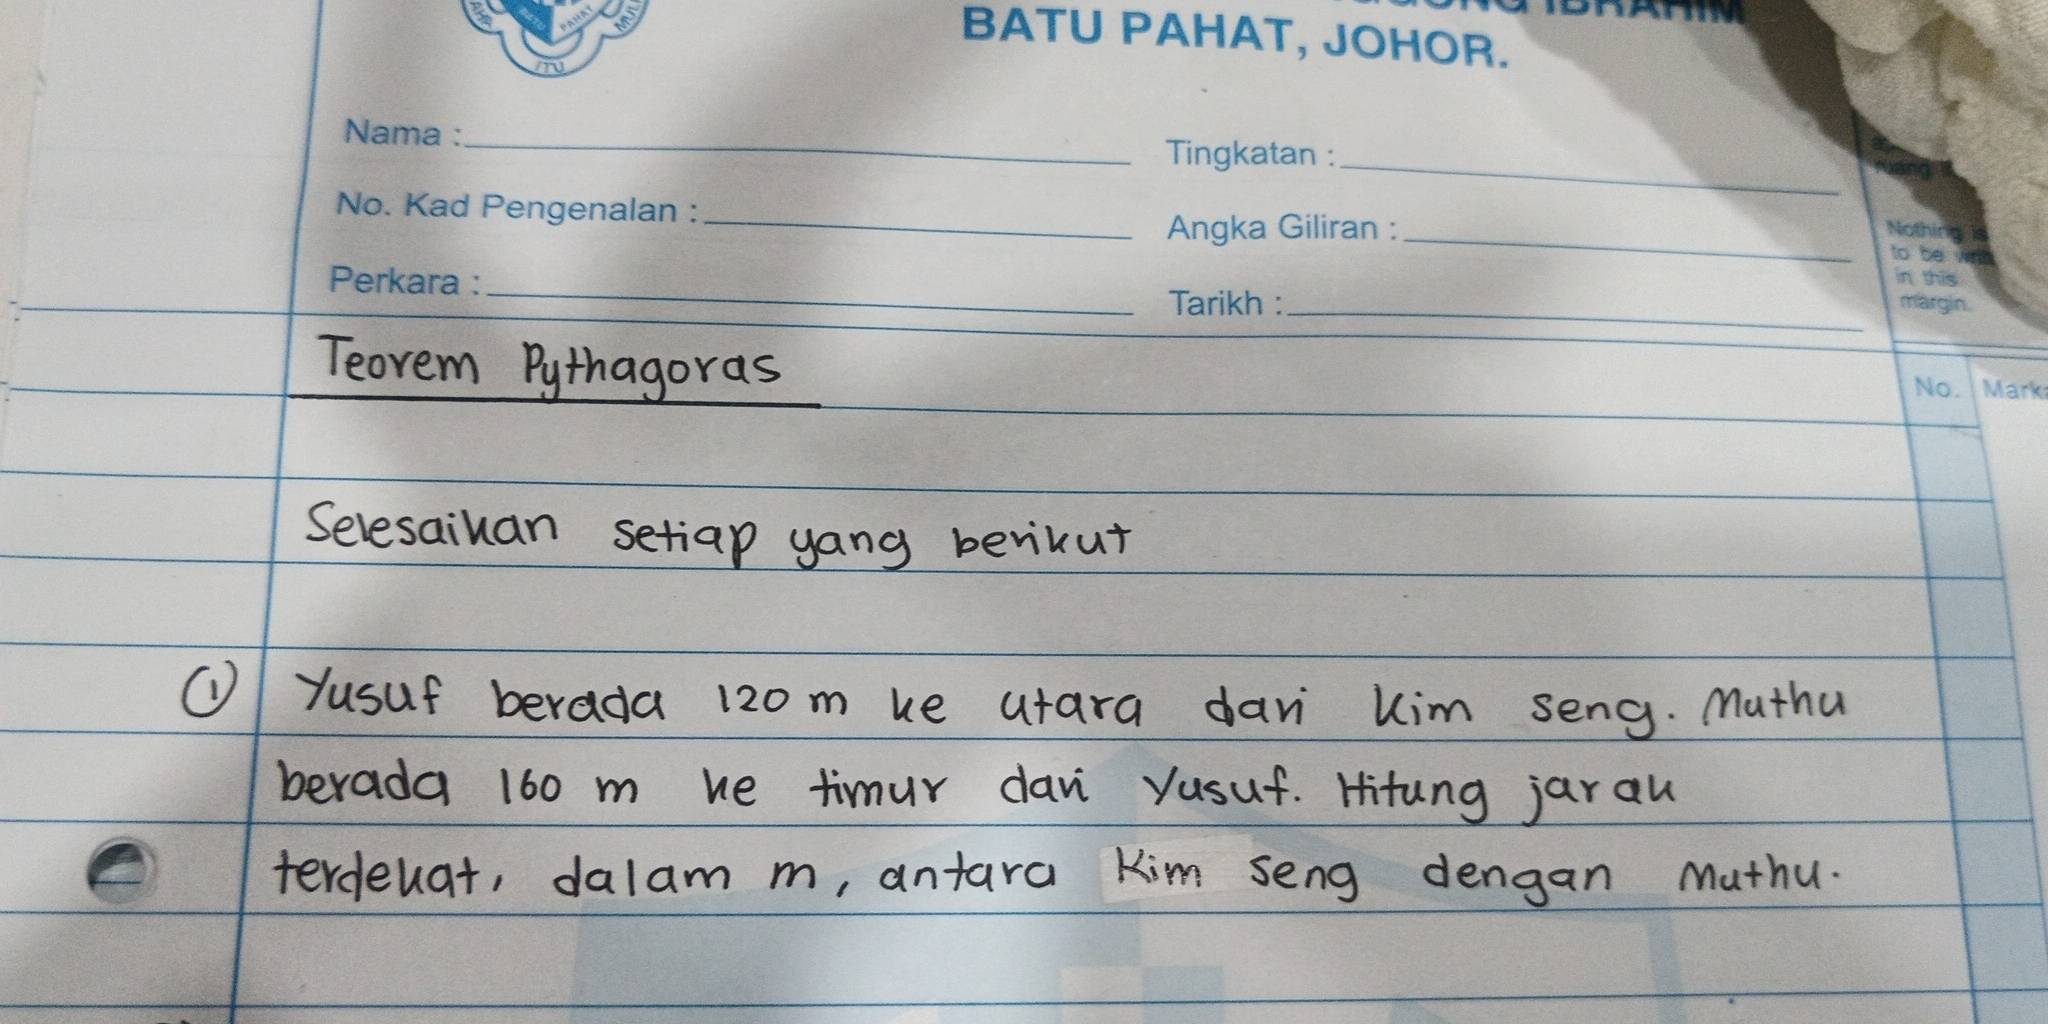 IBRAHIM
BATU PAHAT, JOHOR.
BATU PAHAT
ITU
Nama :
Tingkatan :
No. Kad Pengenalan :
Angka Giliran :
Perkara :
Tarikh :
Nothing is
to be
in this
margin.
No.
Teorem Pythagoras
Selesaikan setiap yang berikut
① Yusuf berada 120 m ke utara dari Kim Seng. Muthu
berada 160 m ke timur dari Yusuf. Hitung jarak
terdekat, dalam m, antara Kim Seng dengan Muthu.